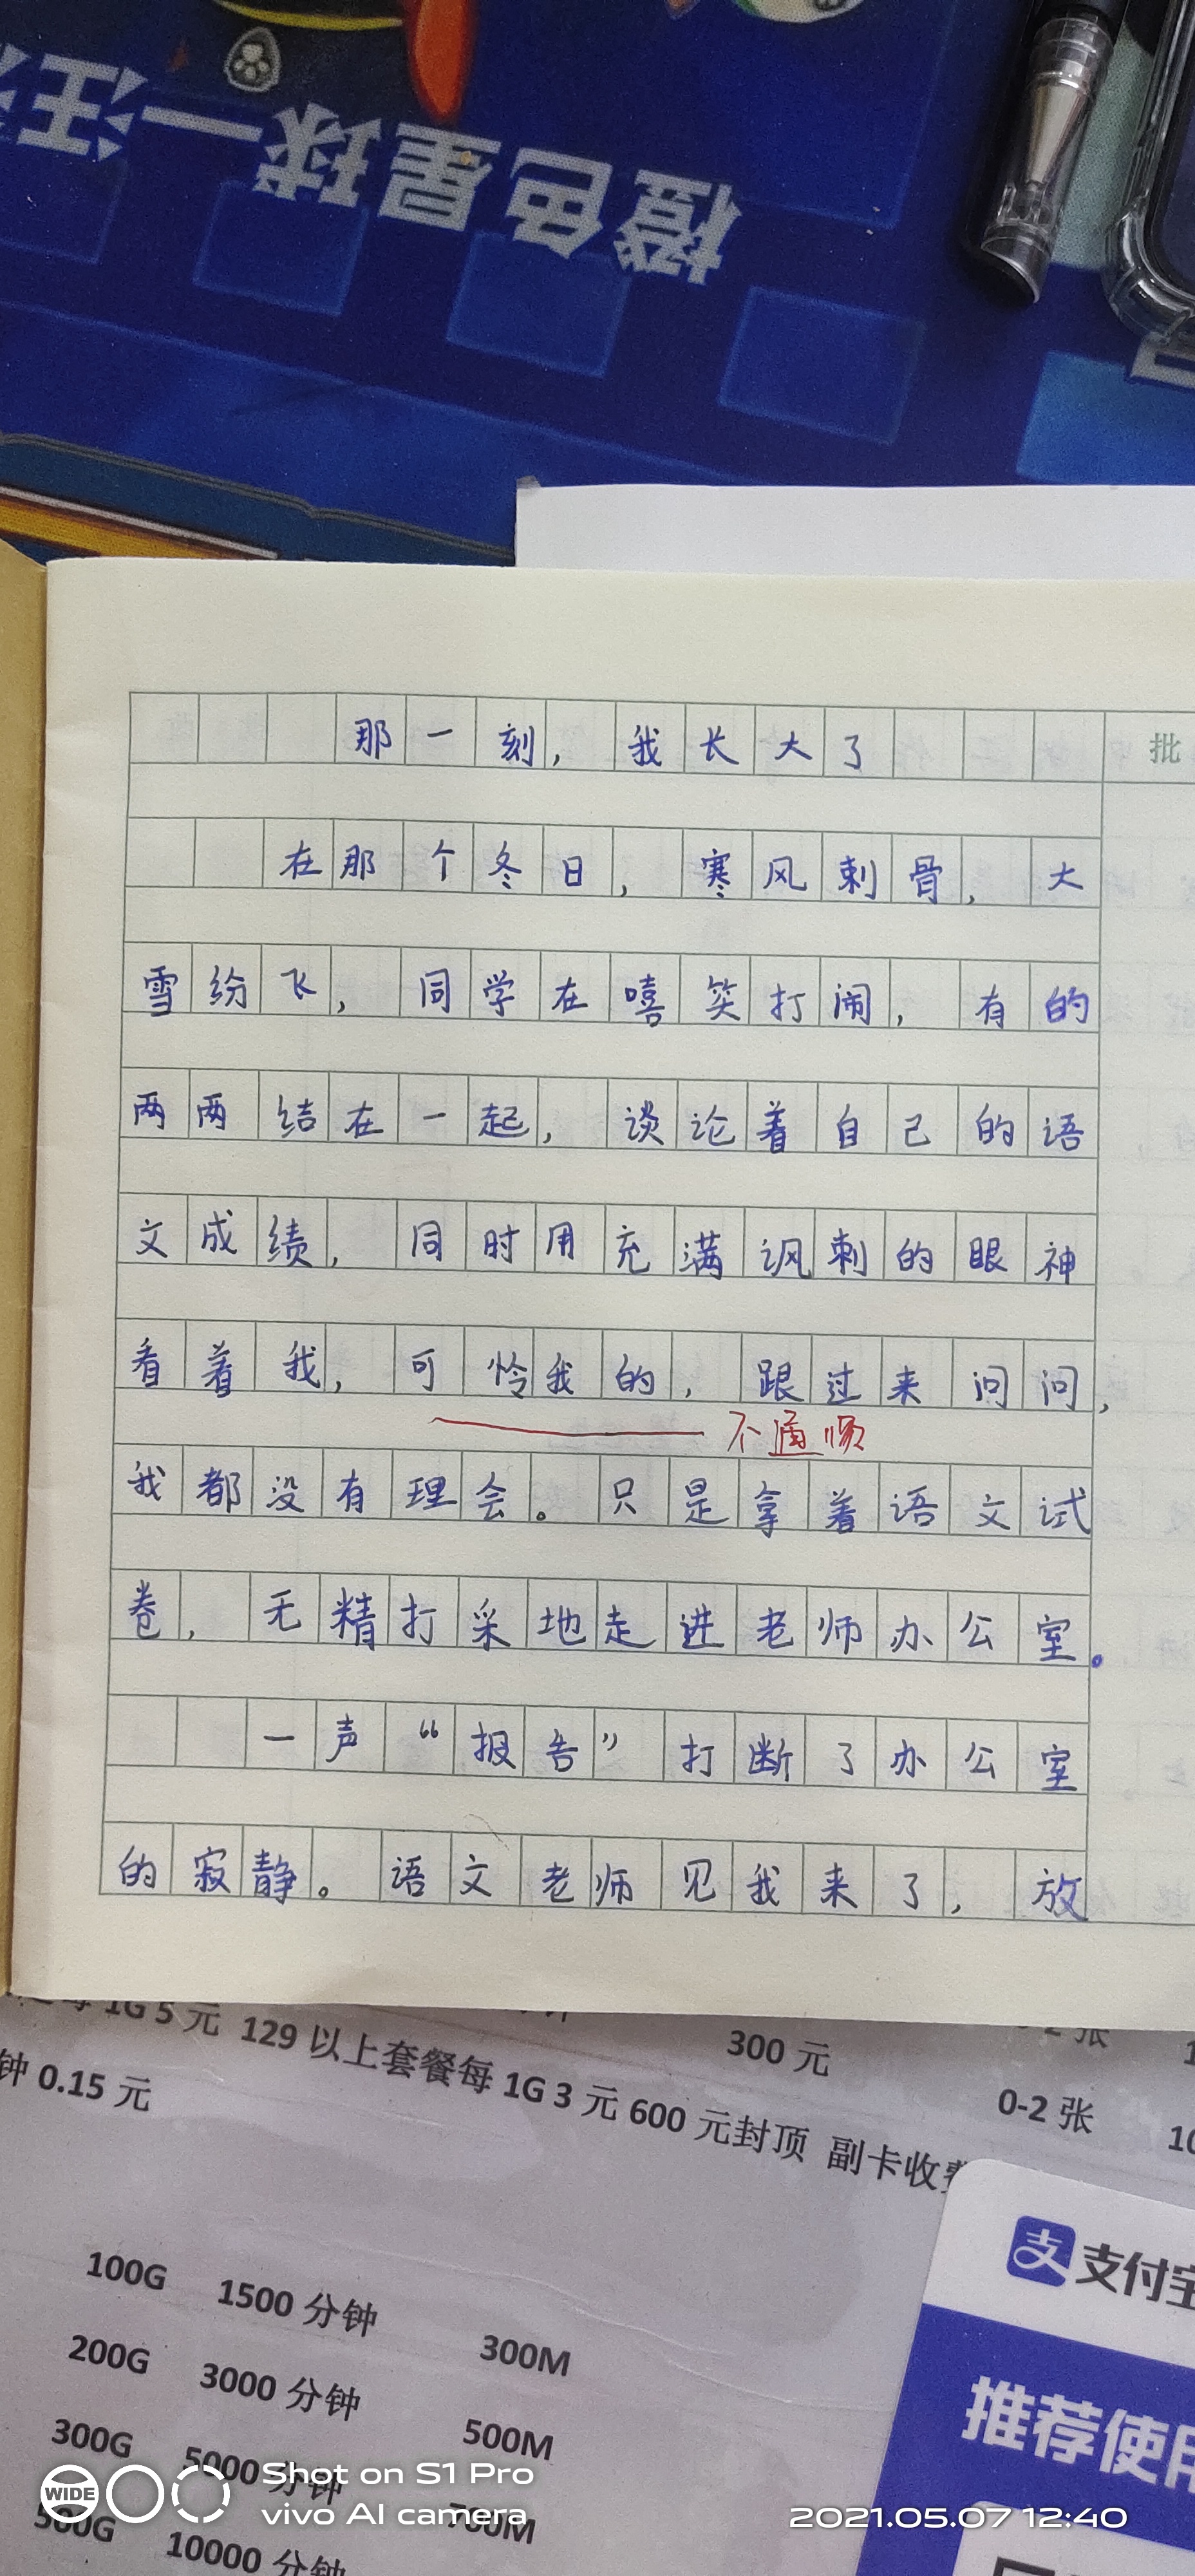 橙色星球一汪
那一刻，我长大了
批
在那个冬日，寒风刺骨，大
雪纷飞，同学在嘻笑打闹，有的
两两结在一起，谈论着自己的语
文成绩，同时用充满讽刺的眼神
看着我，可怜我的，跟过来问问，
不通顺
我都没有理会。只是拿着语文试
卷，无精打采地走进老师办公室。
一声“报告”打断了办公室
的寂静。语文老师见我来了，放
每1G5元 129以上套餐每1G3元600元封顶 副卡收费
300元
0-2张
钟0.15元
0-2张
100G 1500分钟 300M
200G 3000分钟 500M
300G 5000分钟 700M
500G 10000分钟
支付宝
推荐使用
WIDE
Shot on S1 Pro
vivo AI camera
2021.05.07 12:40